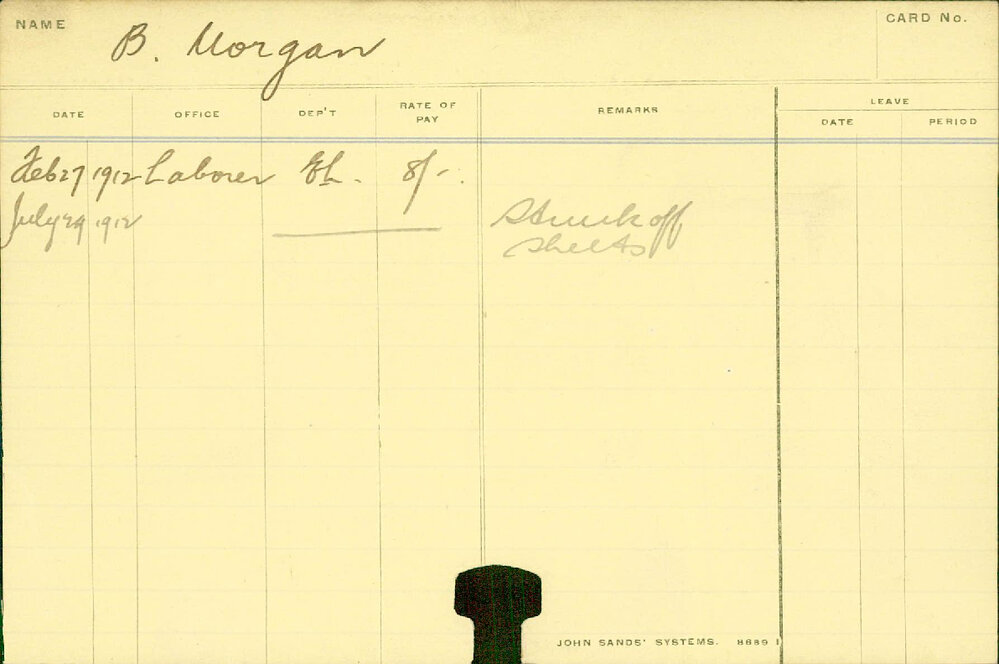 NAME B. Morgan CARD No.
DATE OFFICE DEP'T RATE OF PAY REMARKS LEAVE
DATE PERIOD
Feb 27 1912 Laborer 8/-.
July 29 1912 Struck off
Sheets
JOHN SANDS' SYSTEMS. 8689